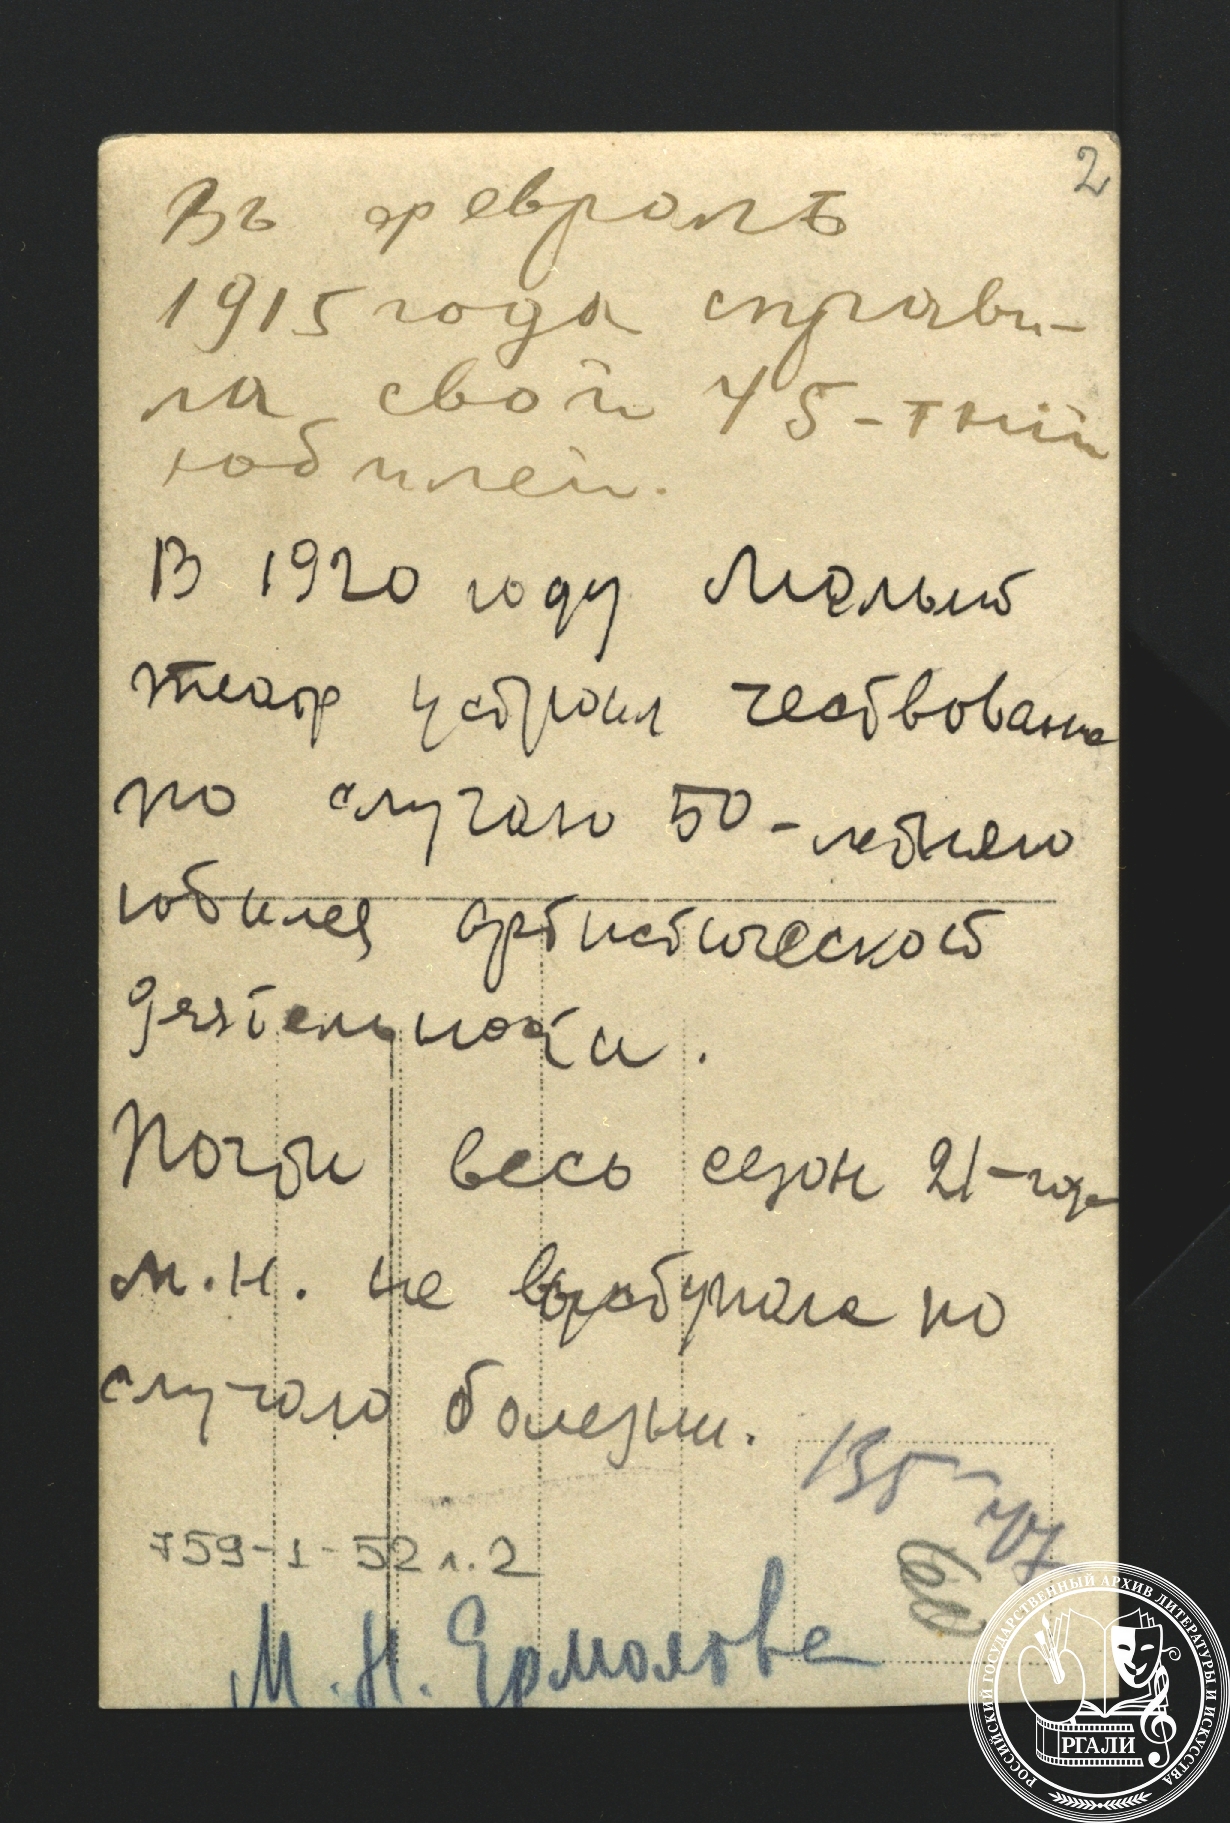 2
Въ февралѣ
1915 года справи-
ла свой 45-тній
юбилей.
В 1920 году Малый
театр устроил чествование
по случаю 50-летняго
юбилея артистической
деятельности.
Почти весь сезон 21-года
М.Н. не выступала по
случаю болезни.
60
759-1-52 л.2
М.Н. Ермолова
РОССИЙСКИЙ ГОСУДАРСТВЕННЫЙ АРХИВ ЛИТЕРАТУРЫ И ИСКУССТВА
РГАЛИ